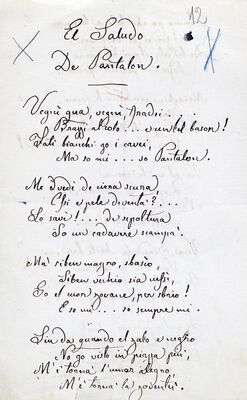 12
El Saludo
De Pantalon.
Vegnì qua, vegnì, Anadri...
Brazzi al colo... e un bel bason!
Fati bianchi go i cavei,
Ma so mi... so Pantalon.
Me vedè de viena scuna,
Chi e pele diventà?...
Lo savè!... de sepoltura
So un cadavere scampà.
Ma siben magro, sbasio,
Siben vechio sia
Go el cuor zovane, per sbrio!
E so mi... so sempre mi.
Sin da quando el zalo e negro
No go visto in piazza più,
M'è tornà l'umor alegro,
M'è tornà la zoventù.